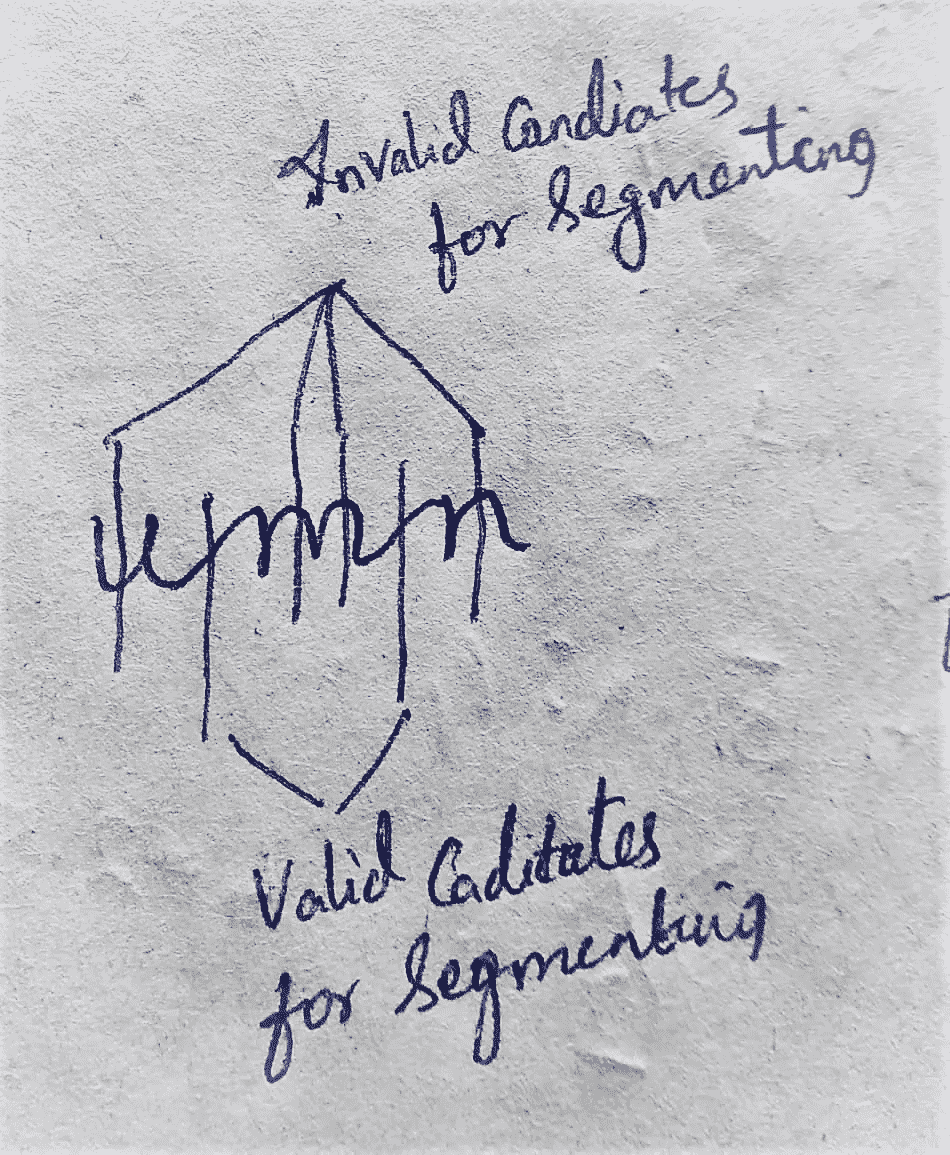 Invalid Candiates
for Segmenting
umn
Valid Caditates
for Segmenting